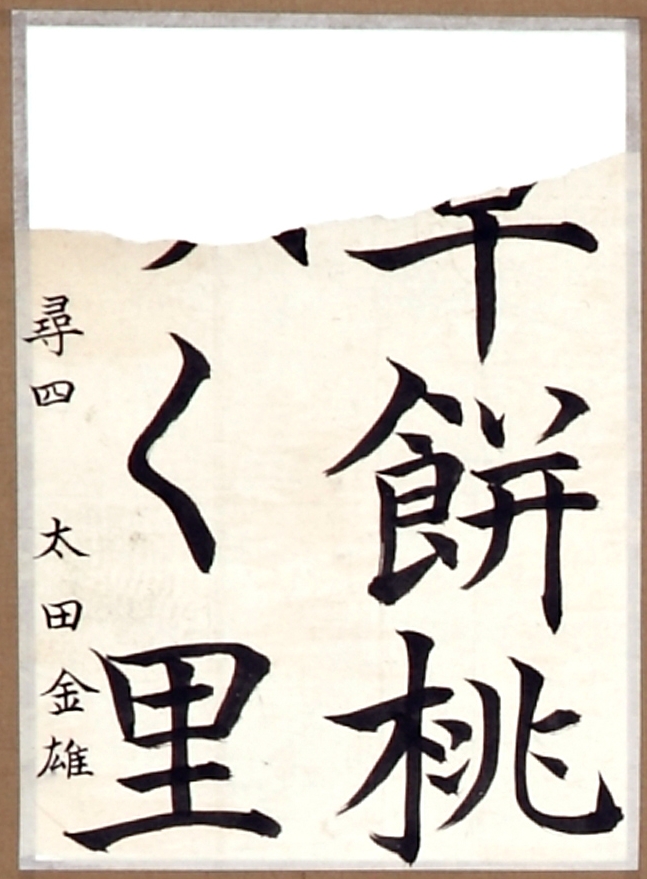 餅桃
く里
尋四 太田金雄